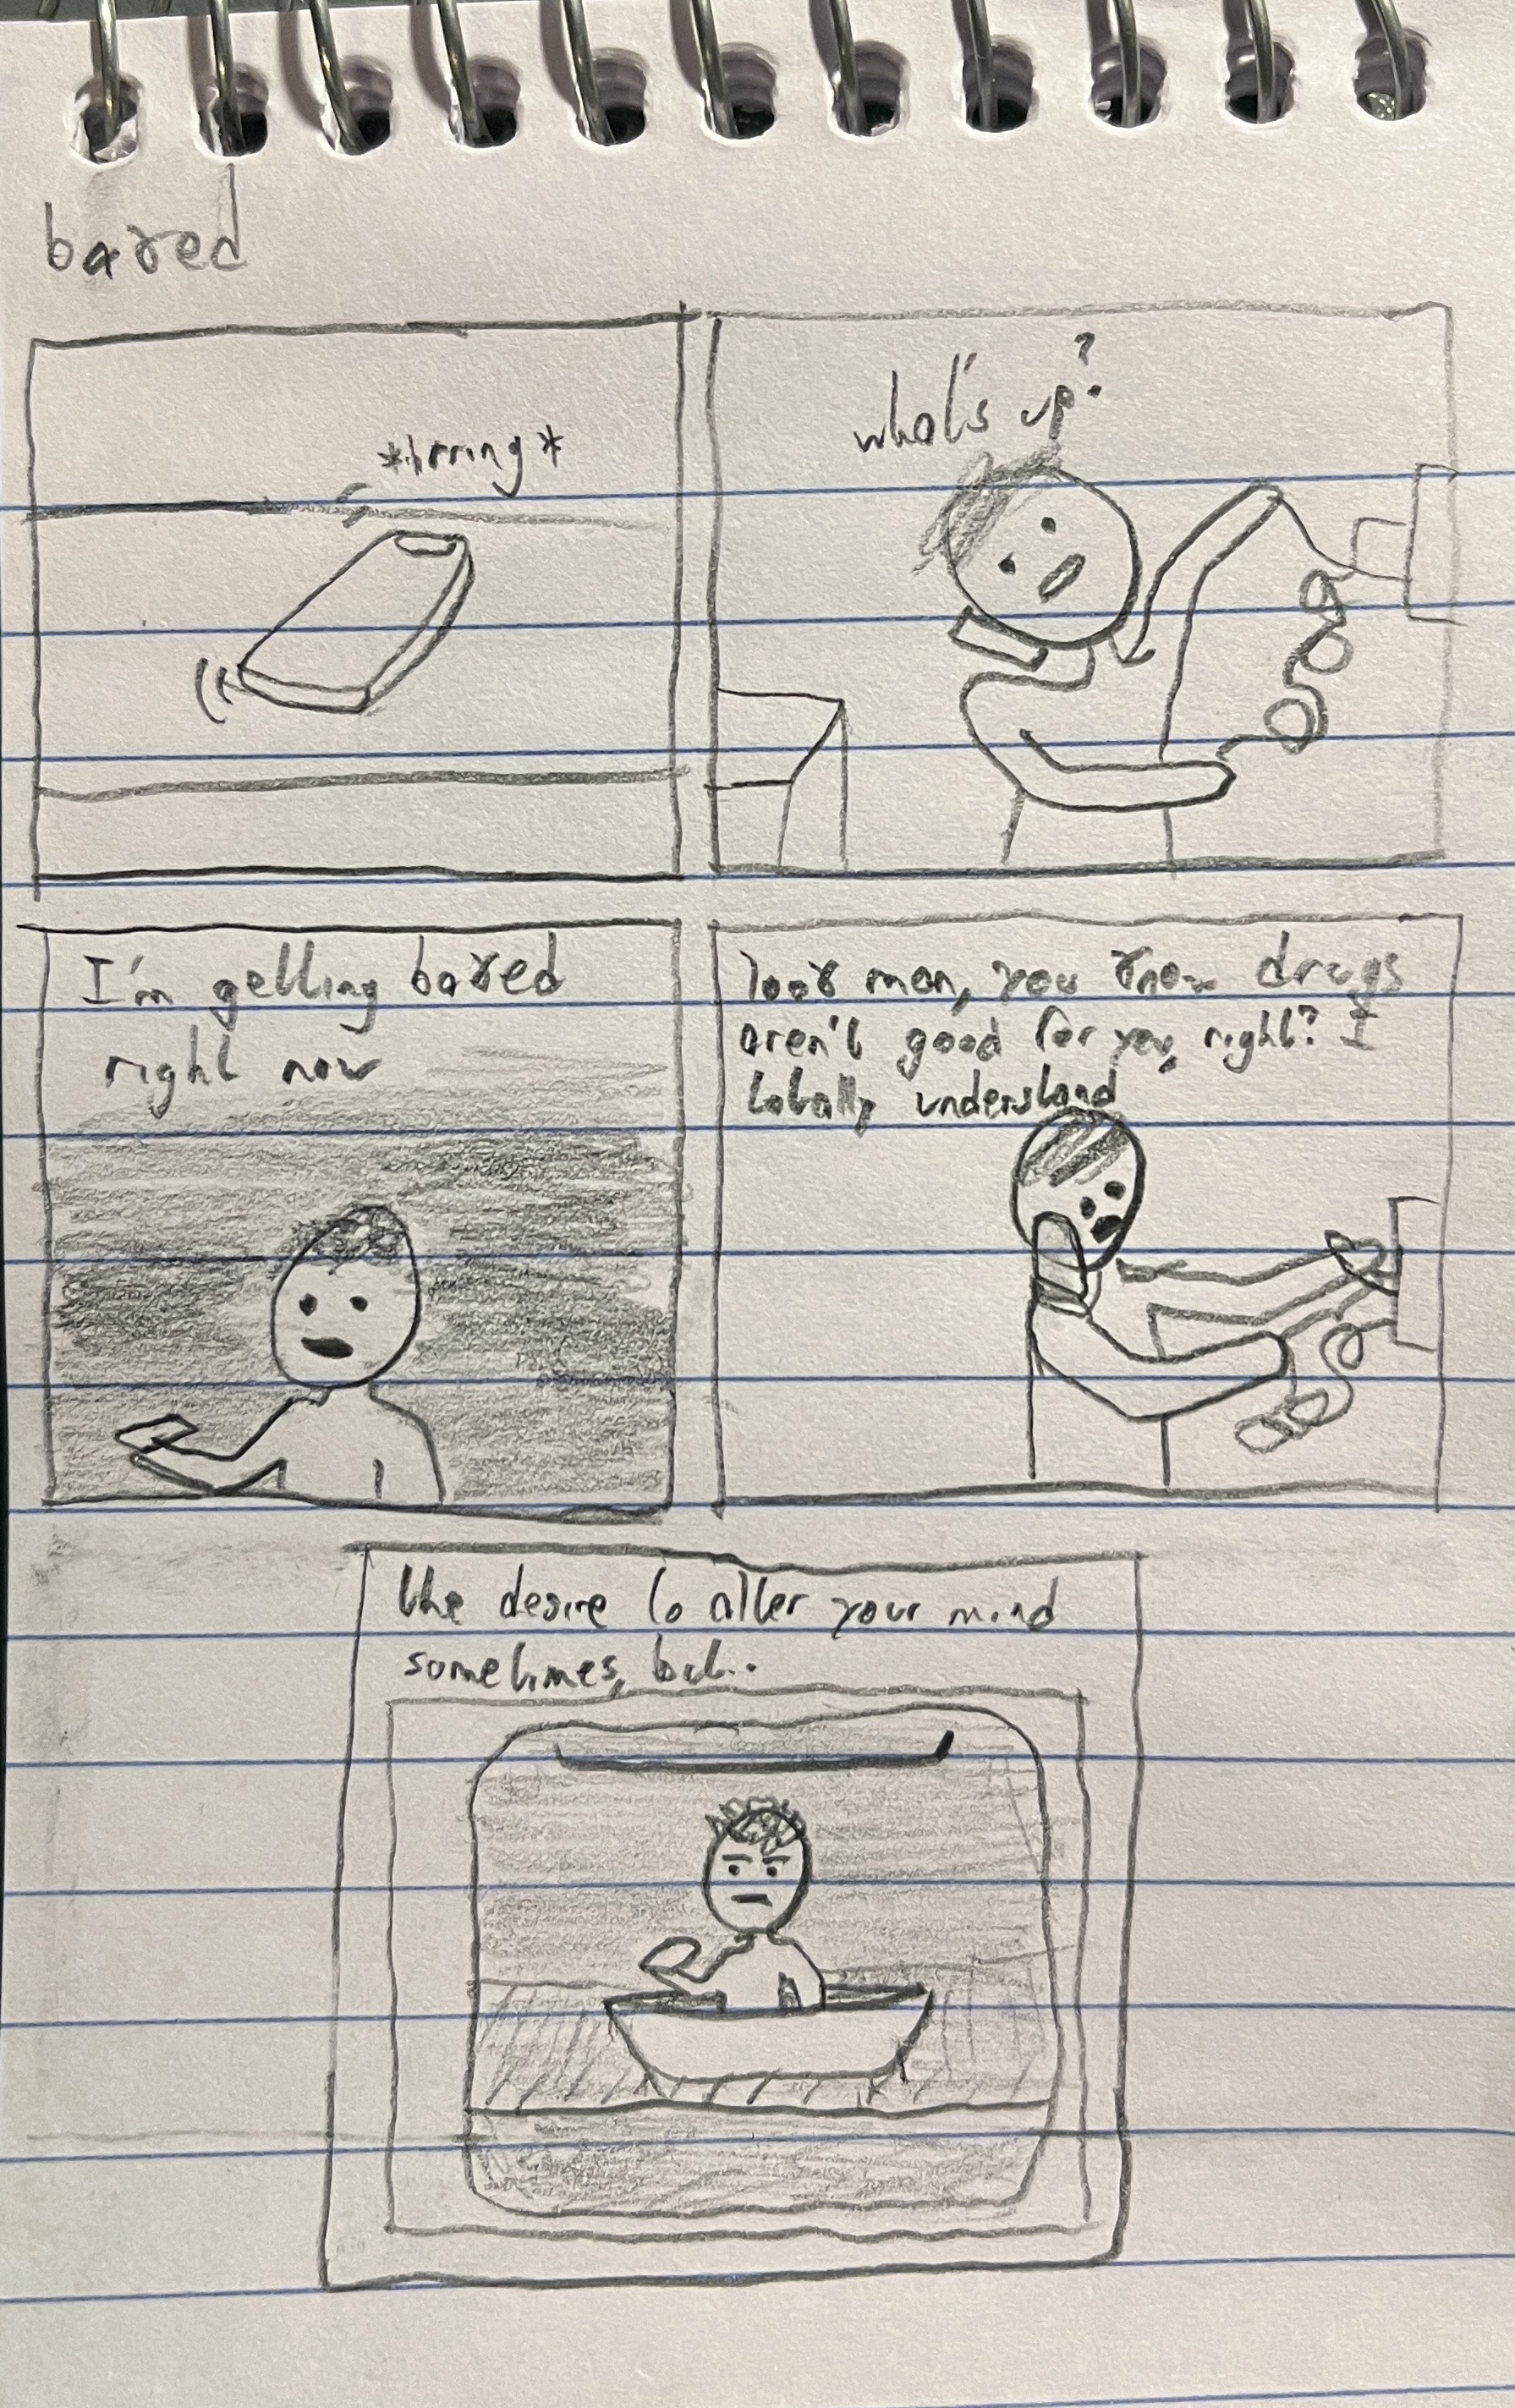 baked
*brring*
what's up?
I'm getting baked
right now
look man, you know drugs
aren't good for you, right? I
totally understand
the desire to alter your mind
sometimes, but..